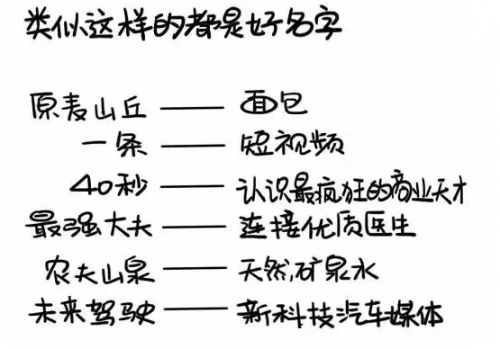 类似这样的都是好名字
原麦山丘 —— 面包
一条 —— 短视频
40秒 —— 认识最疯狂的商业天才
最强大夫 —— 连接优质医生
农夫山泉 —— 天然矿泉水
未来驾驶 —— 新科技汽车媒体